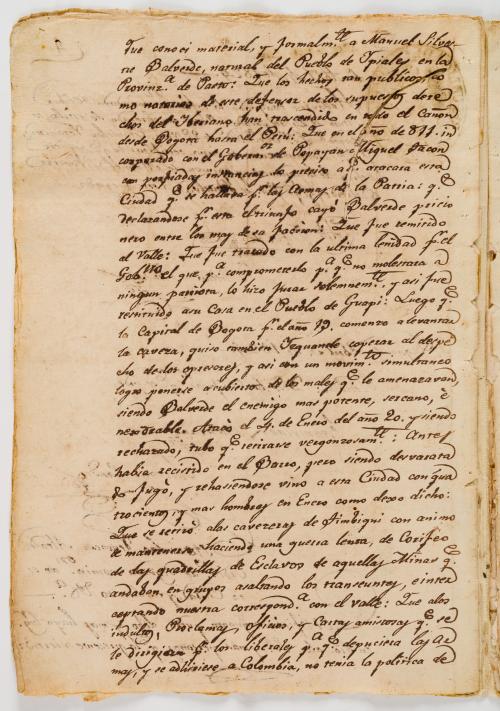 fue conoci material, y formalm.te a Manuel Silves
tre Balverde, natural del Pueblo de Ypiales en la
Provinz.a de Pasto: Que los hechos tan publicos, co
mo notorios de este defensor de los supuestos dere
chos del Iberiano han trascendido en todo el Canon
desde Bogotá hasta el Perú: Que en el año de 811. in
corporado con el Gobernor de Popayan Miguel Tacon
con porfiadas instancias lo preciso a q.e atacara esta
Ciudad q.e se hallava p.r las Armas de la Patria: q.e
declarandose p.r esta el triunfo cayó Balverde pricio
nero entre los mas de su faccion: Que fue remitido
al Valle: Que fue tratado con la ultima lenidad p.r el
Gob.no el que, p.a comprometerlo p.a q.e no molestara a
ningun patriota, lo hizo jurar solemnem.te, y asi fue
restituido a su Casa en el Pueblo de Guapi: Luego q.e
la Capital de Bogota p.r el año 19, comenzo a levantar
la caveza, quiso tambien Yzquande coperar al despe
cho de los opresores, y asi con un movim.to simultaneo
logro ponerse a cubierto de los males q.e le amenazavan,
siendo Balverde el enemigo mas potente, sercano, é
inexorable. Atacó el 4 de Enero del año 20. y siendo
rechazado, tubo q.e retirarse vergonzosam.te: Antes
había recistido en el Barro, pero siendo desvarata
do fugó, y rehasiendose vino a esta Ciudad con qua
trocientos, y mas hombres en Enero como dexo dicho:
Que se retiró a las caveceras de Timbiqui con animo
de mantenerse haciendo una guerra lenta, de Corifeo
de las quadrillas de Esclavos de aquellas Minas q.e
andaban en grupos asaltando los transeuntes, e inter
ceptando nuestra correspond.a con el Valle: Que a los
indultos, Proclamas, oficios, y Cartas amistosas q.e se
le dirigian p.r los liberales p.a q.e depuciera las Ar
mas, y se adhiriese a Colombia, no tenia la politica de